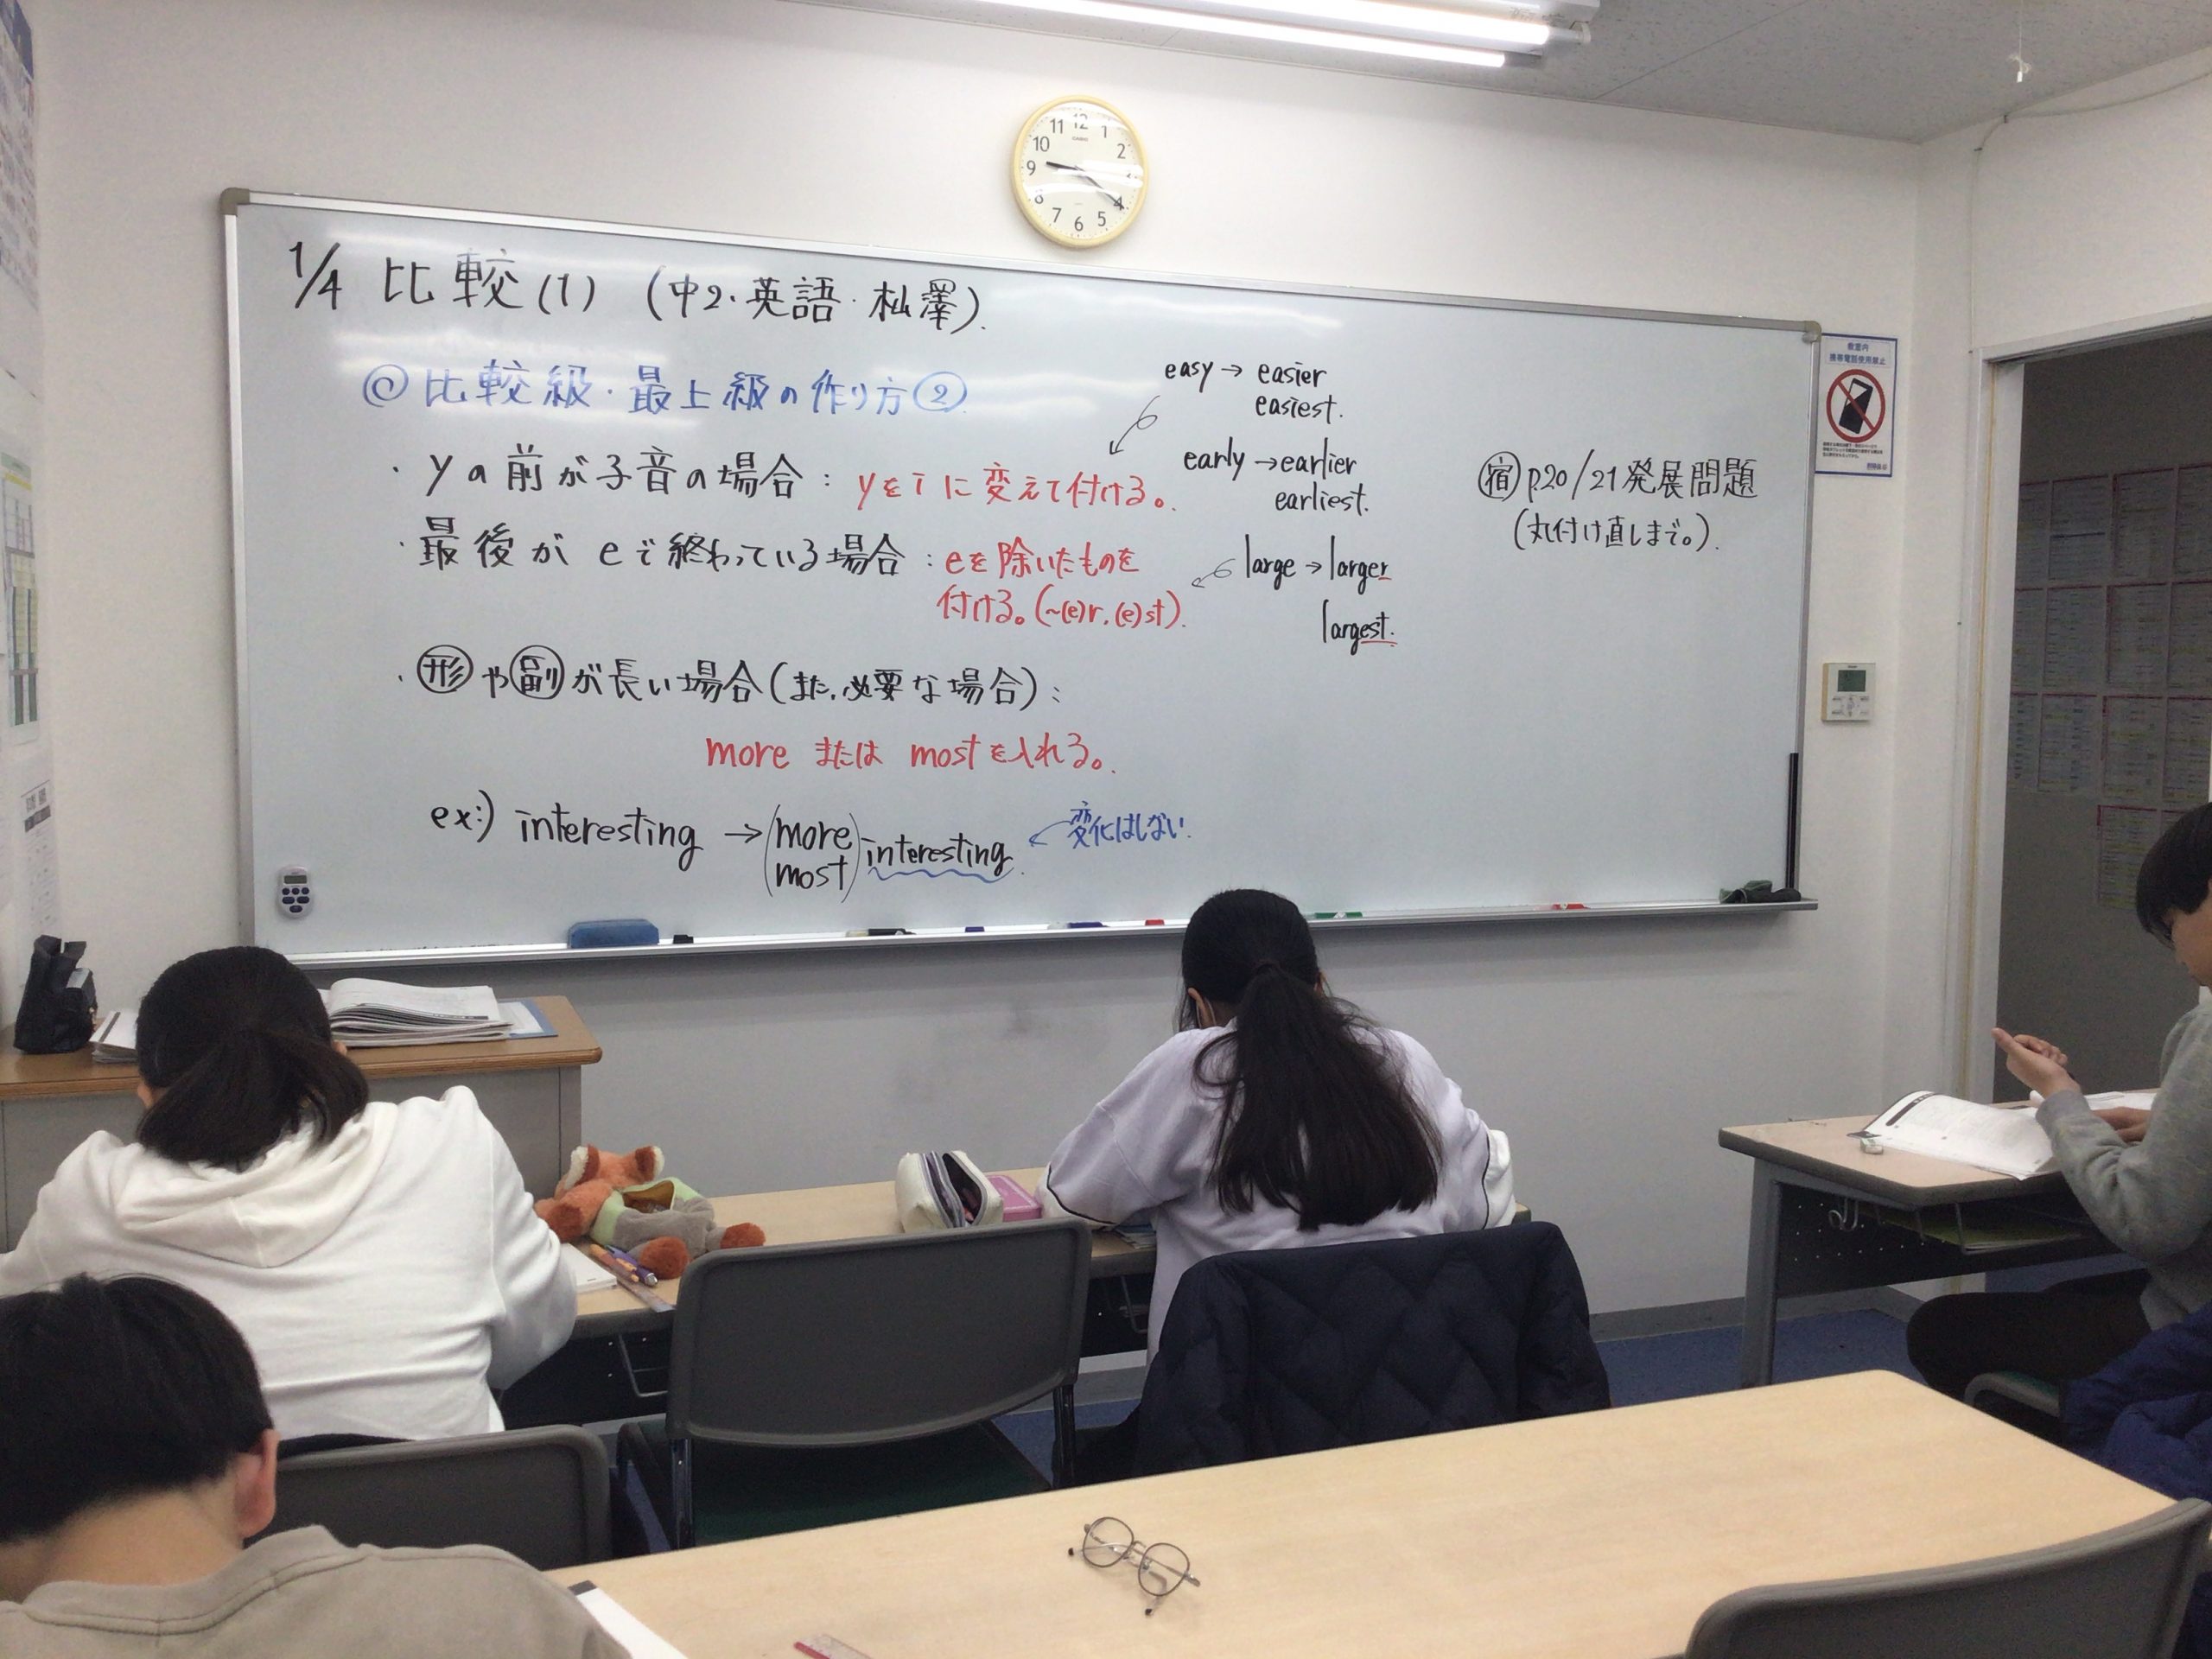 1/4 比較(1) (中2・英語・杣澤).
◎比較級・最上級の作り方②
・yの前が子音の場合：yをiに変えて付ける。
easy → easier
easiest.
early → earlier
earliest.
・最後がeで終わっている場合：eを除いたものを
付ける。(~(e)r. (e)st).
large → larger
largest.
・形や副が長い場合(また、必要な場合)：
more または mostを入れる。
ex:) interesting → (more most) interesting
変化はしない.
宿 p20/21 発展問題
(丸付け直しまで。).
11 12 1
10 2
9
8 4
7 6 5
CASIO
教室内
携帯電話使用禁止